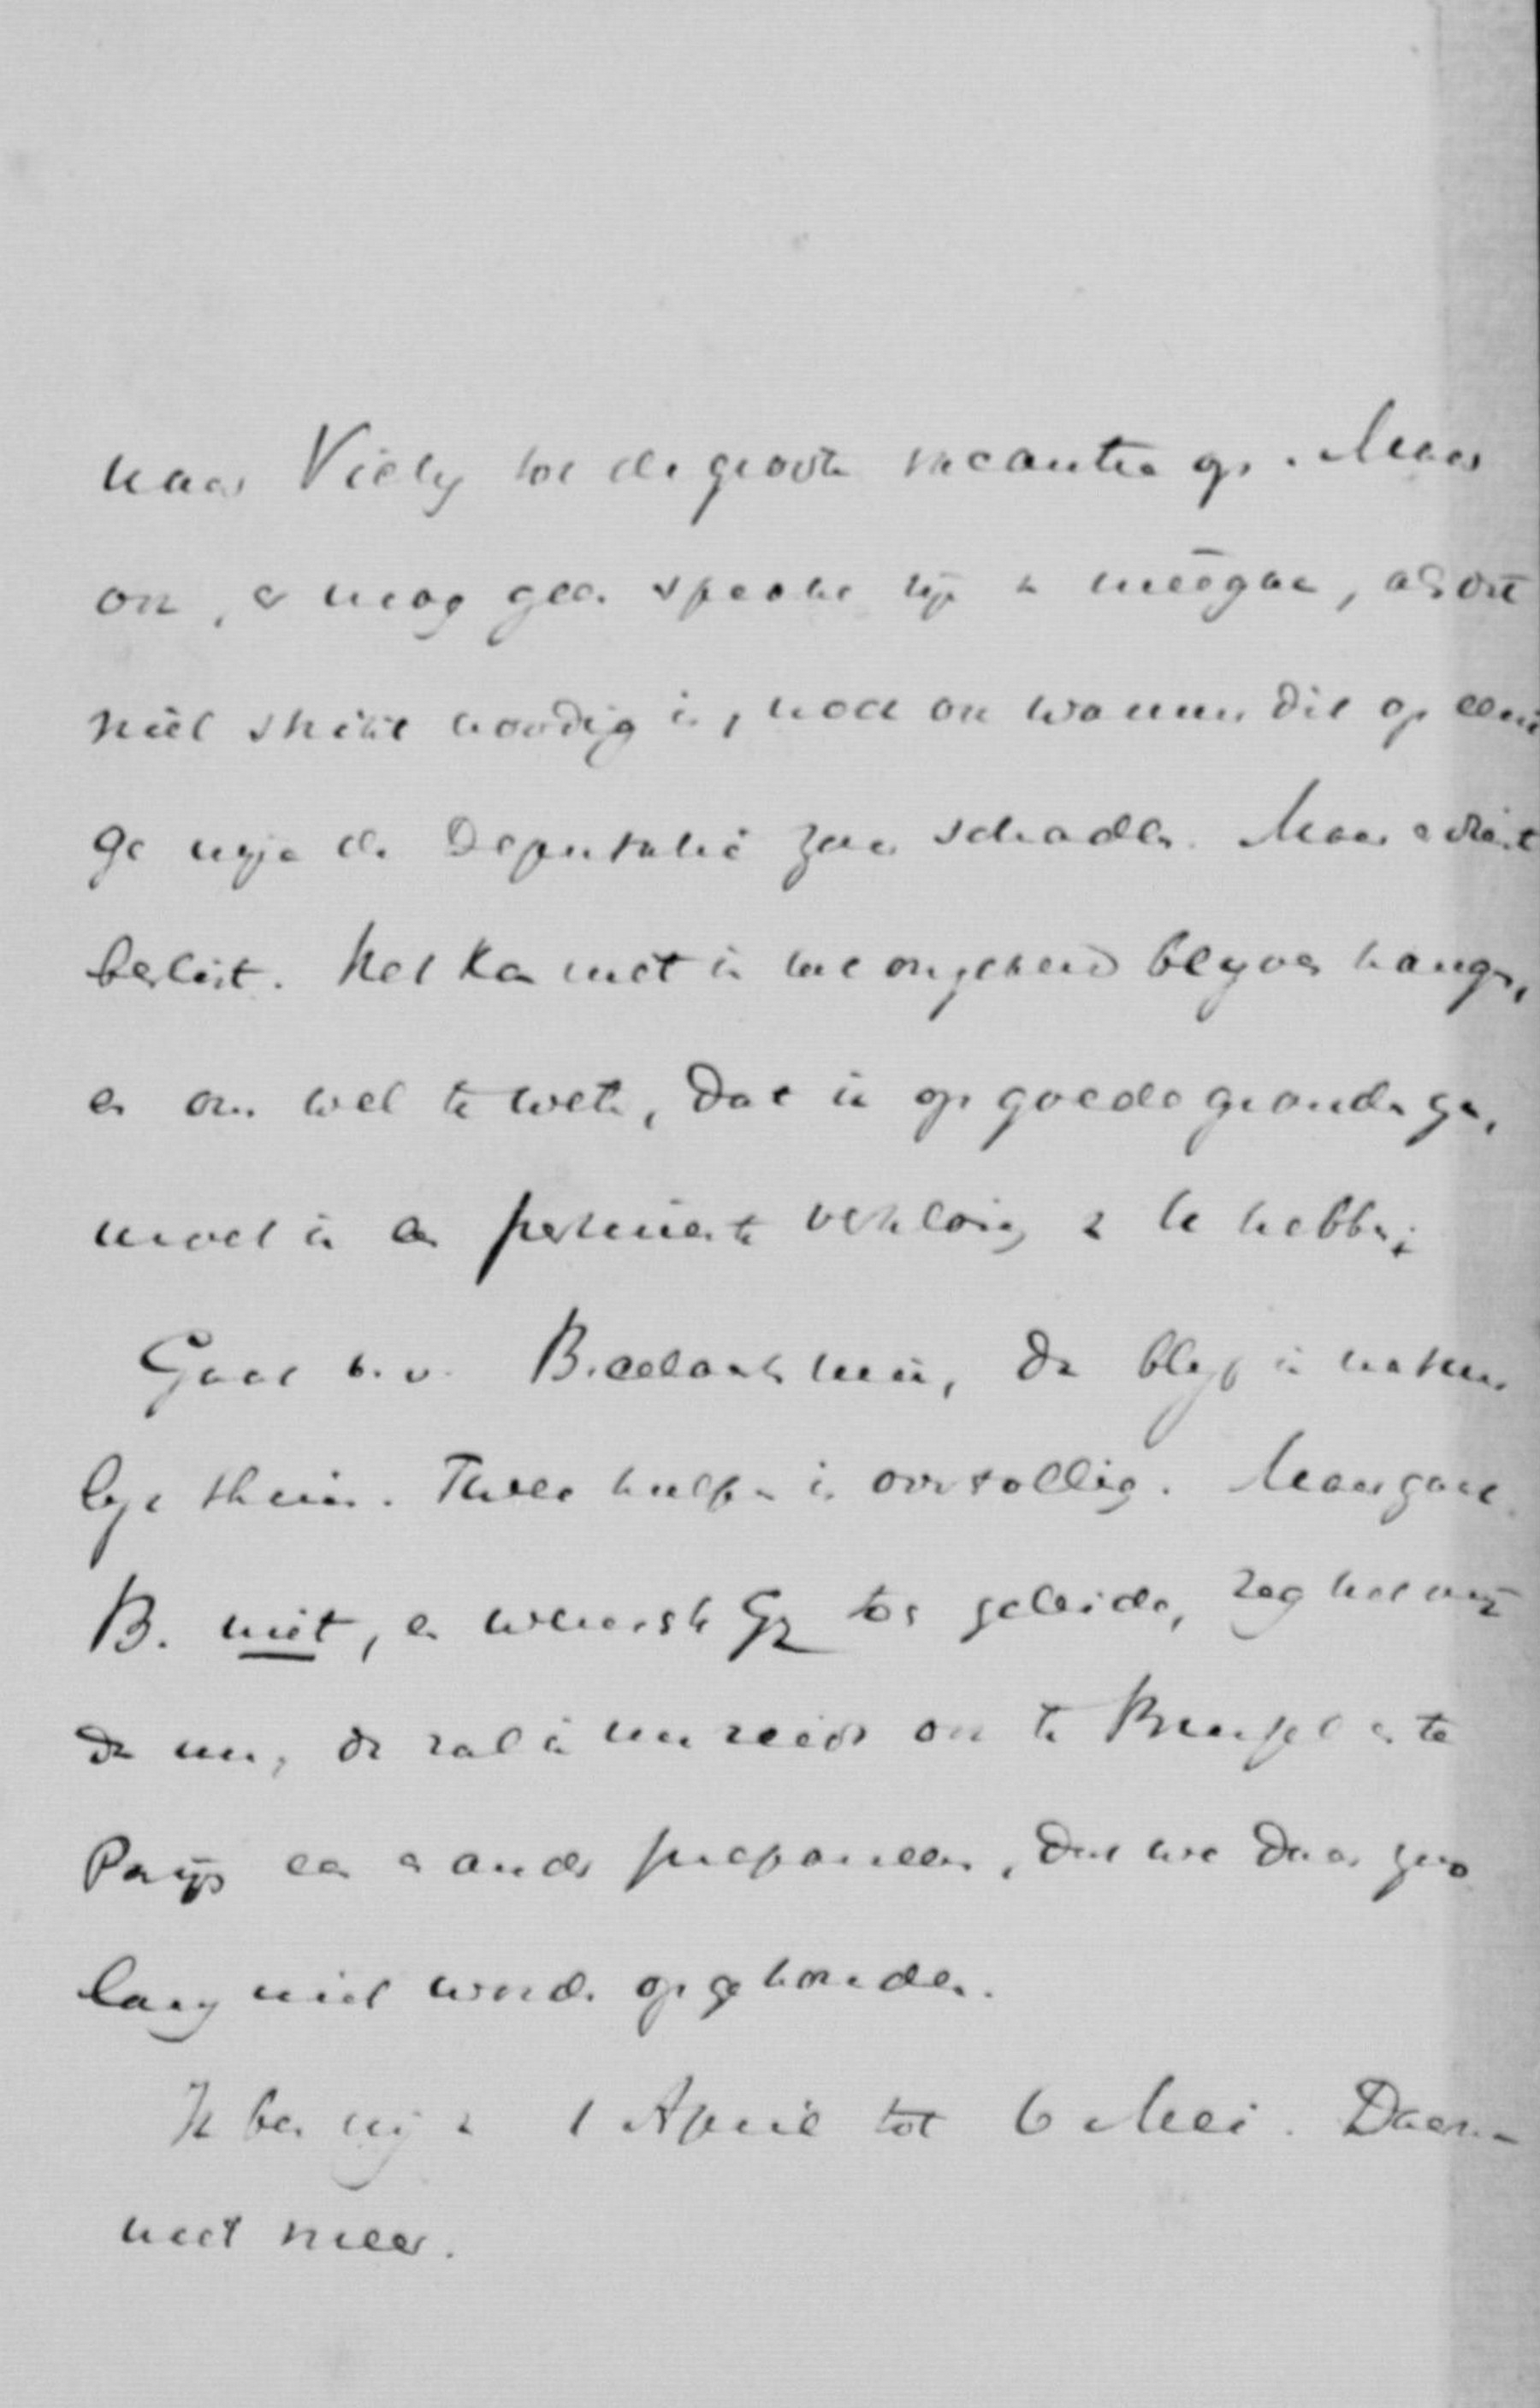 naar Vichy tot de groote vacantie op. Maar
om, er mag geen sprake zijn van meegaan, als dit
niet strikt noodig is, noch om wanneer dit op eeni
ge wijze de Deputatie zou schaden. Maar er dient
beslist. Het kan niet in het ongereede blijven hangen,
en om wel te weten, dat ik op goede gronden ga,
moet ik een pertinente verklaring van U hebben;
Gaat b.v. Beelaerts mee, dan blijf ik natuur
lijk thuis. Twee hulpen is overtollig. Maar gaat
B. niet, en wenscht Gij toch geleide, zeg het mij
dan nu, dan zal ik nu reeds om te Brussel en te
Parijs een en ander prepareeren, dat we daar zoo
lang niet worden opgehouden.
Ik ben vrij van 1 April tot 6 Mei. Daarna
niet meer.